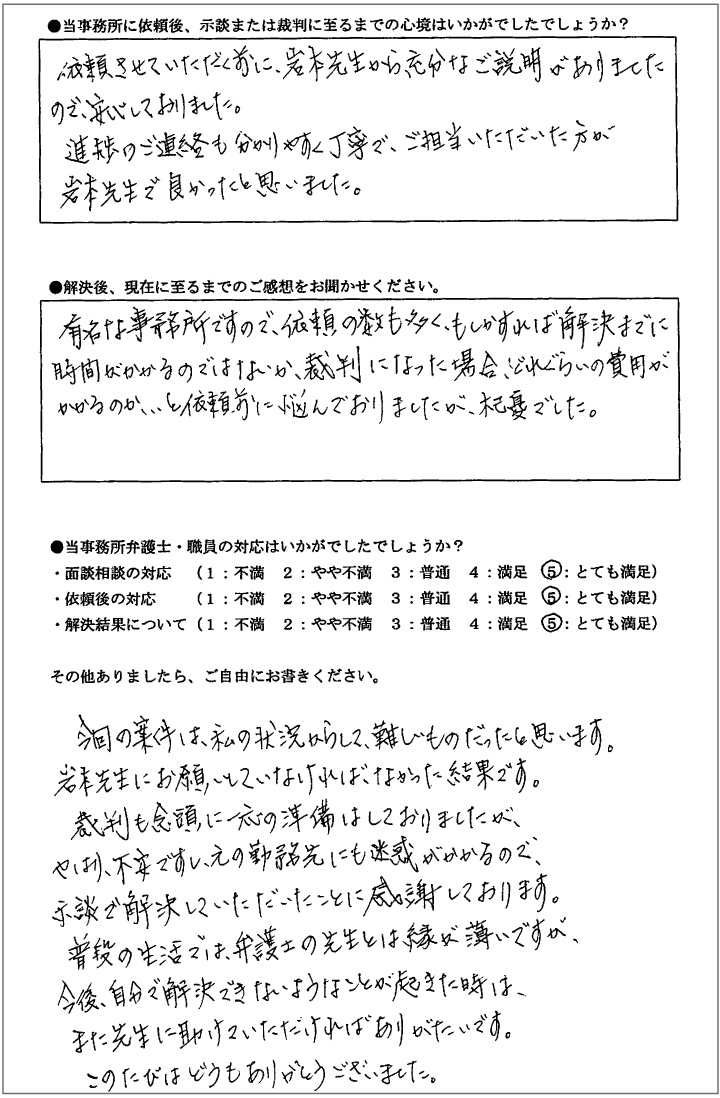 ●当事務所に依頼後、示談または裁判に至るまでの心境はいかがでしたでしょうか？
依頼させていただく前に、岩本先生から、充分なご説明がありました
ので、安心しておりました。
進捗のご連絡も分かりやすく丁寧で、ご担当いただいた方が
岩本先生で良かったと思いました。
●解決後、現在に至るまでのご感想をお聞かせください。
有名な事務所ですので、依頼の数も多く、もしかすれば解決までに
時間がかかるのではないか、裁判になった場合、どれぐらいの費用が
かかるのか、、、と依頼前に悩んでおりましたが、杞憂でした。
●当事務所弁護士・職員の対応はいかがでしたでしょうか？
・面談相談の対応 （１：不満 ２：やや不満 ３：普通 ４：満足 ⑤：とても満足）
・依頼後の対応 （１：不満 ２：やや不満 ３：普通 ４：満足 ⑤：とても満足）
・解決結果について（１：不満 ２：やや不満 ３：普通 ４：満足 ⑤：とても満足）
その他ありましたら、ご自由にお書きください。
今回の案件は、私の状況からして、難しいものだったと思います。
岩本先生にお願いしていなければ、なかった結果です。
裁判も念頭に一応の準備はしておりましたが、
やはり、不安ですし、元の勤務先にも迷惑がかかるので、
示談で解決していただいたことに感謝しております。
普段の生活では、弁護士の先生とは縁が薄いですが、
今後、自分で解決できないようなことが起きた時は、
また先生に助けていただければありがたいです。
このたびはどうもありがとうございました。